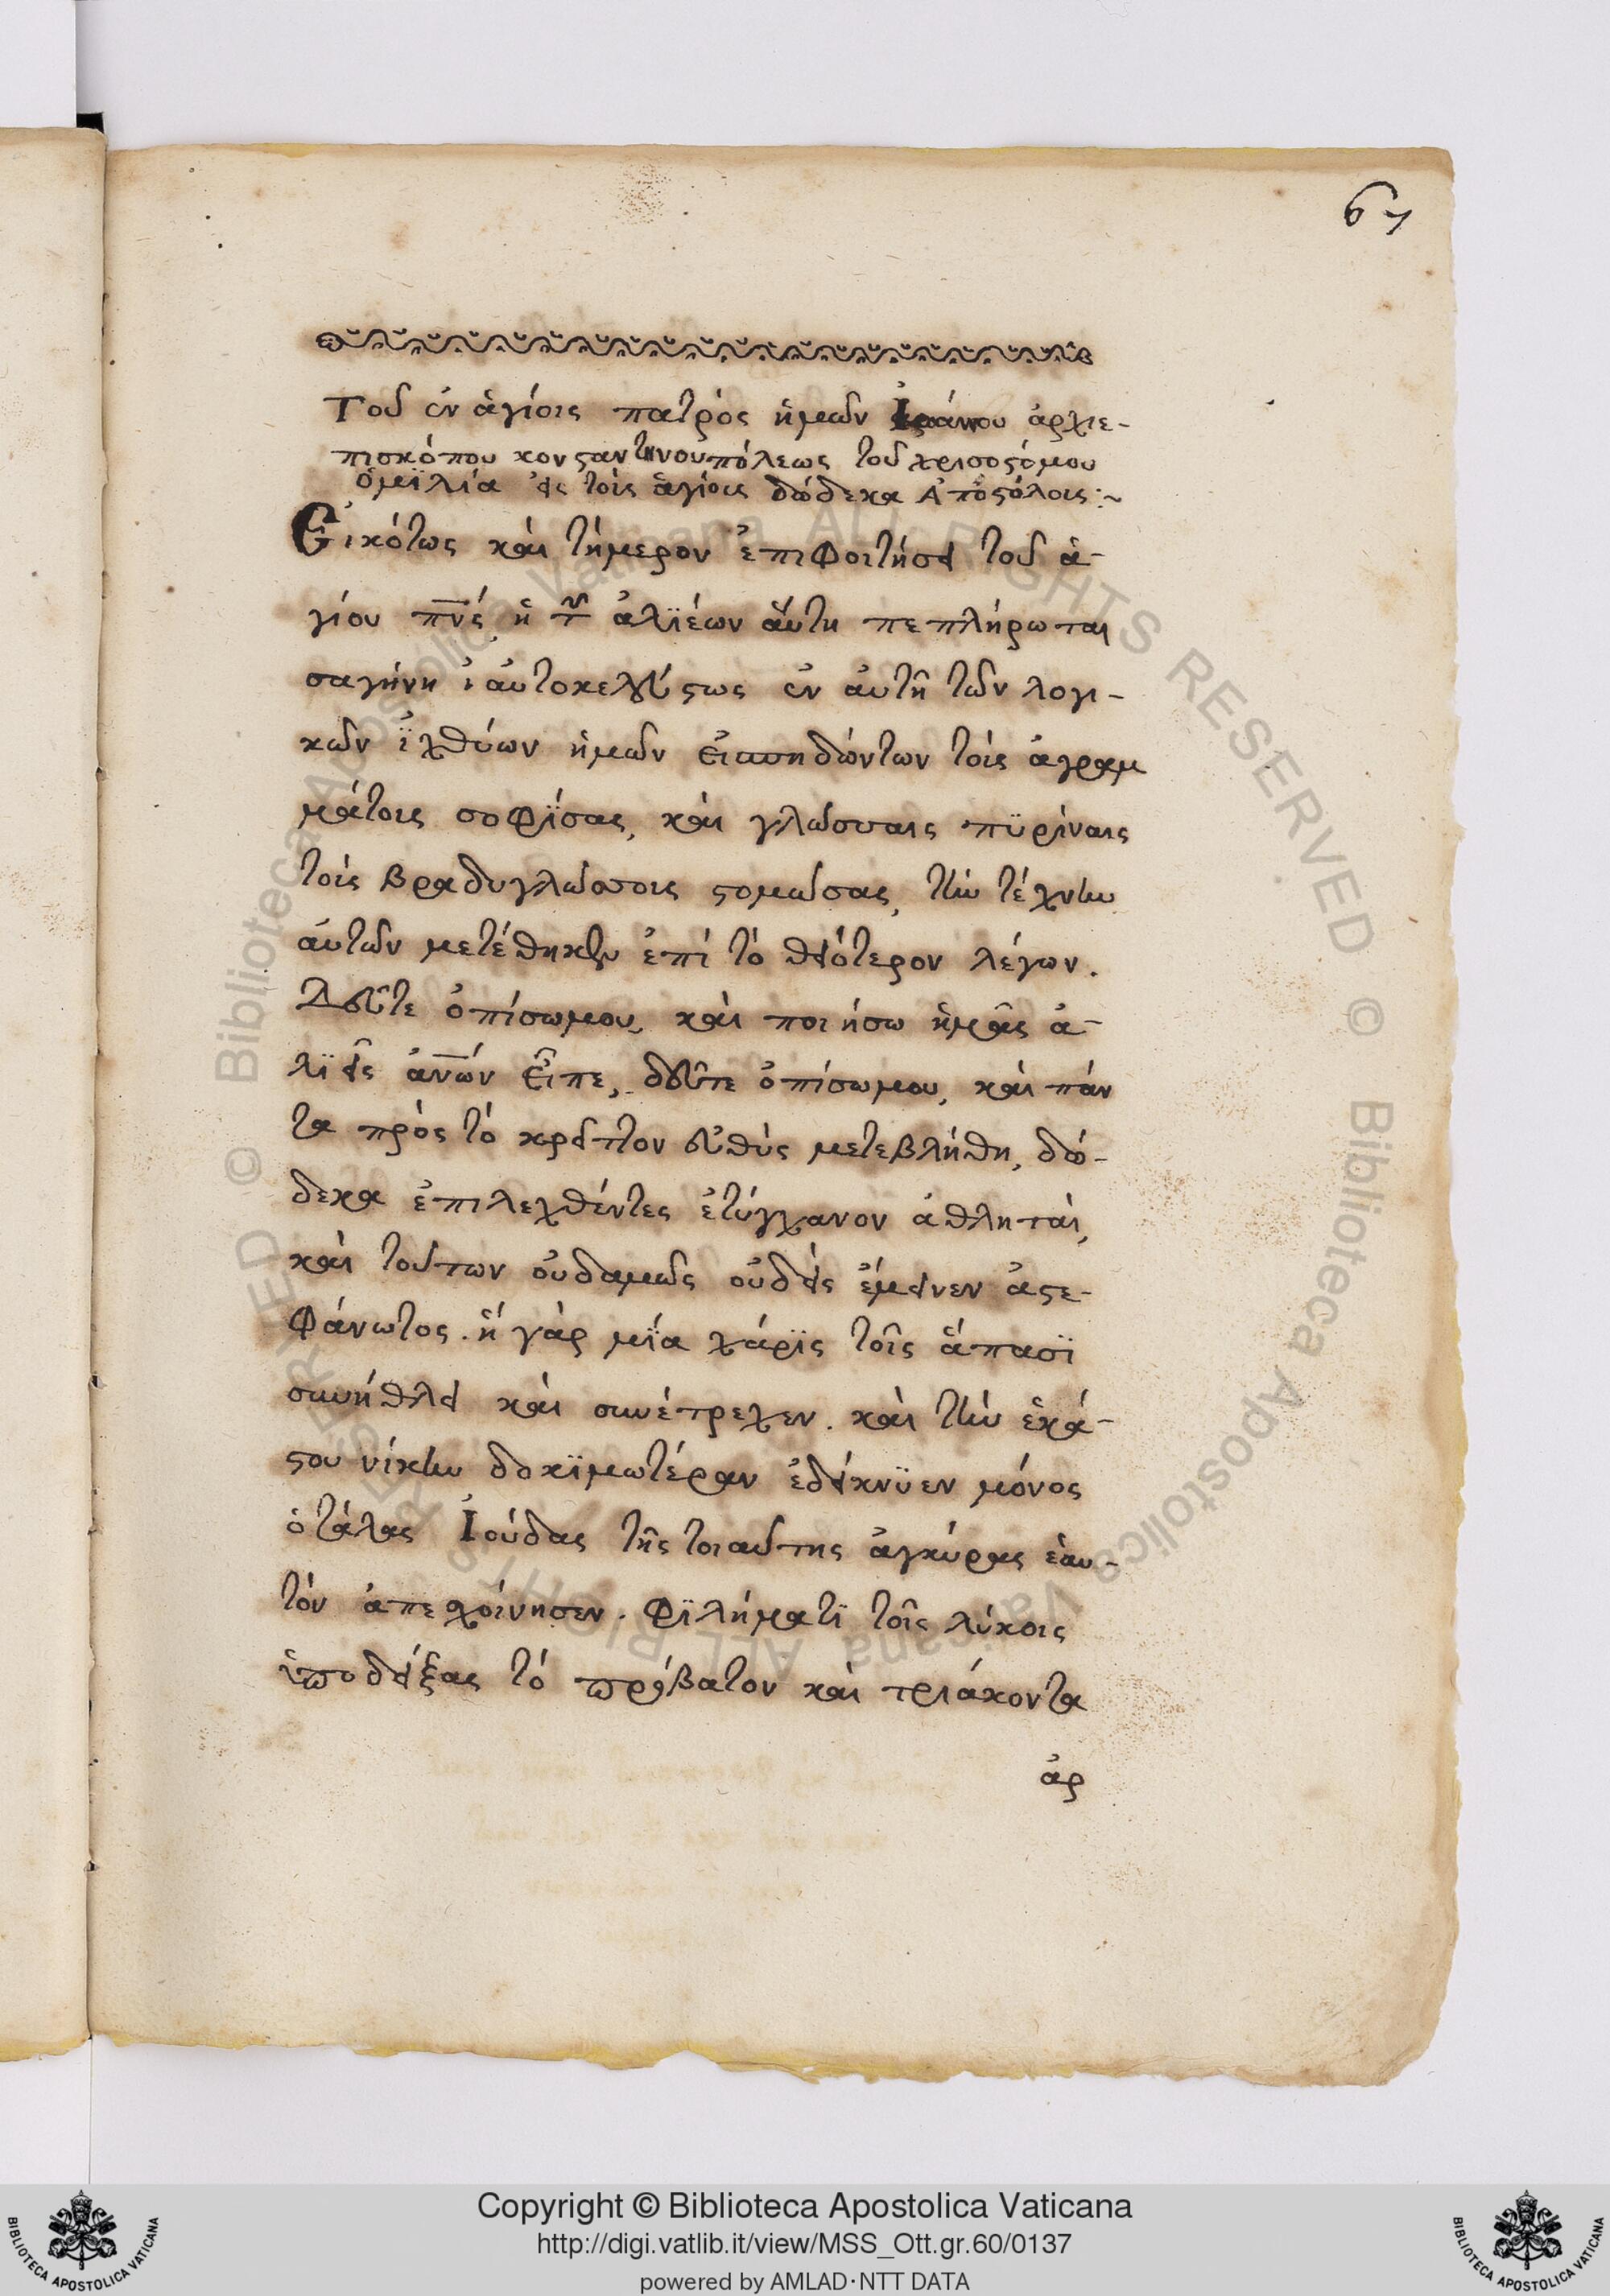 67
Τοῦ ἐν ἁγίοις πατρὸς ἡμῶν Ἰωάννου ἀρχιε-
πισκόπου κονσταντινουπόλεως τοῦ χρισοστόμου
ὁμϊλία εἰς τοὶς ἁγίοις δώδεκα Ἀποστόλοις:~
Εἰκότως καὶ τήμερον ἐπιφοιτήσει τοῦ ἁ-
γίου πν̅ς ἡ τῶν ἁλϊέων αὕτη πεπλήρωται
σαγήνη αὐτοκελεύστως ἐν αὐτῇ τῶν λογι-
κῶν ἰχθύων ἡμῶν εἰσπηδώντων τοὶς ἀγραμ
μάτοις σοφϊσας, καὶ γλώσσαις πϋρίναις
τοὶς βραδυγλώσσοις στομώσας, τὴν τέχνην
αὐτῶν μετέθηκεν ἐπὶ τὸ θειότερον λέγων.
Δεῦτε ὀπίσωμου, καὶ ποιήσω ἡμᾶς ἁ-
λϊεῖς ἀν̅ών Εἶπε, δεῦτε ὀπίσωμου, καὶ πάν
τα πρὸς τὸ κρεῖττον εὐθὺς μετεβλήθη, δώ-
δεκα ἐπιλεχθέντες ἐτύγχανον ἀθληταὶ,
καὶ τούτων οὐδαμῶς οὐδεὶς ἔμεινεν ἀστε-
φάνωτος. ἡ γὰρ μϊα χάρϊς τοῖς ἅπασϊ
συνήθλει καὶ συνέτρεχεν. καὶ τὴν ἑκά-
στου νίκην δοκϊμωτέραν ἐδείκνϋεν μόνος
ὁ τάλας Ἰούδας τῆς τοιαύτης ἀγκύρας ἑαυ-
τὸν ἀπεσχοίνησεν. Φϊλήματϊ τοῖς λύκοις
ὑποδείξας τὸ πρόβατον καὶ τριάκοντα
ἀρ
Copyright © Biblioteca Apostolica Vaticana
http://digi.vatlib.it/view/MSS_Ott.gr.60/0137
powered by AMLAD·NTT DATA
BIBLIOTECA APOSTOLICA VATICANA
BIBLIOTECA APOSTOLICA VATICANA
© Biblioteca Apostolica Vaticana ALL RIGHTS RESERVED
© Biblioteca Apostolica Vaticana ALL RIGHTS RESERVED